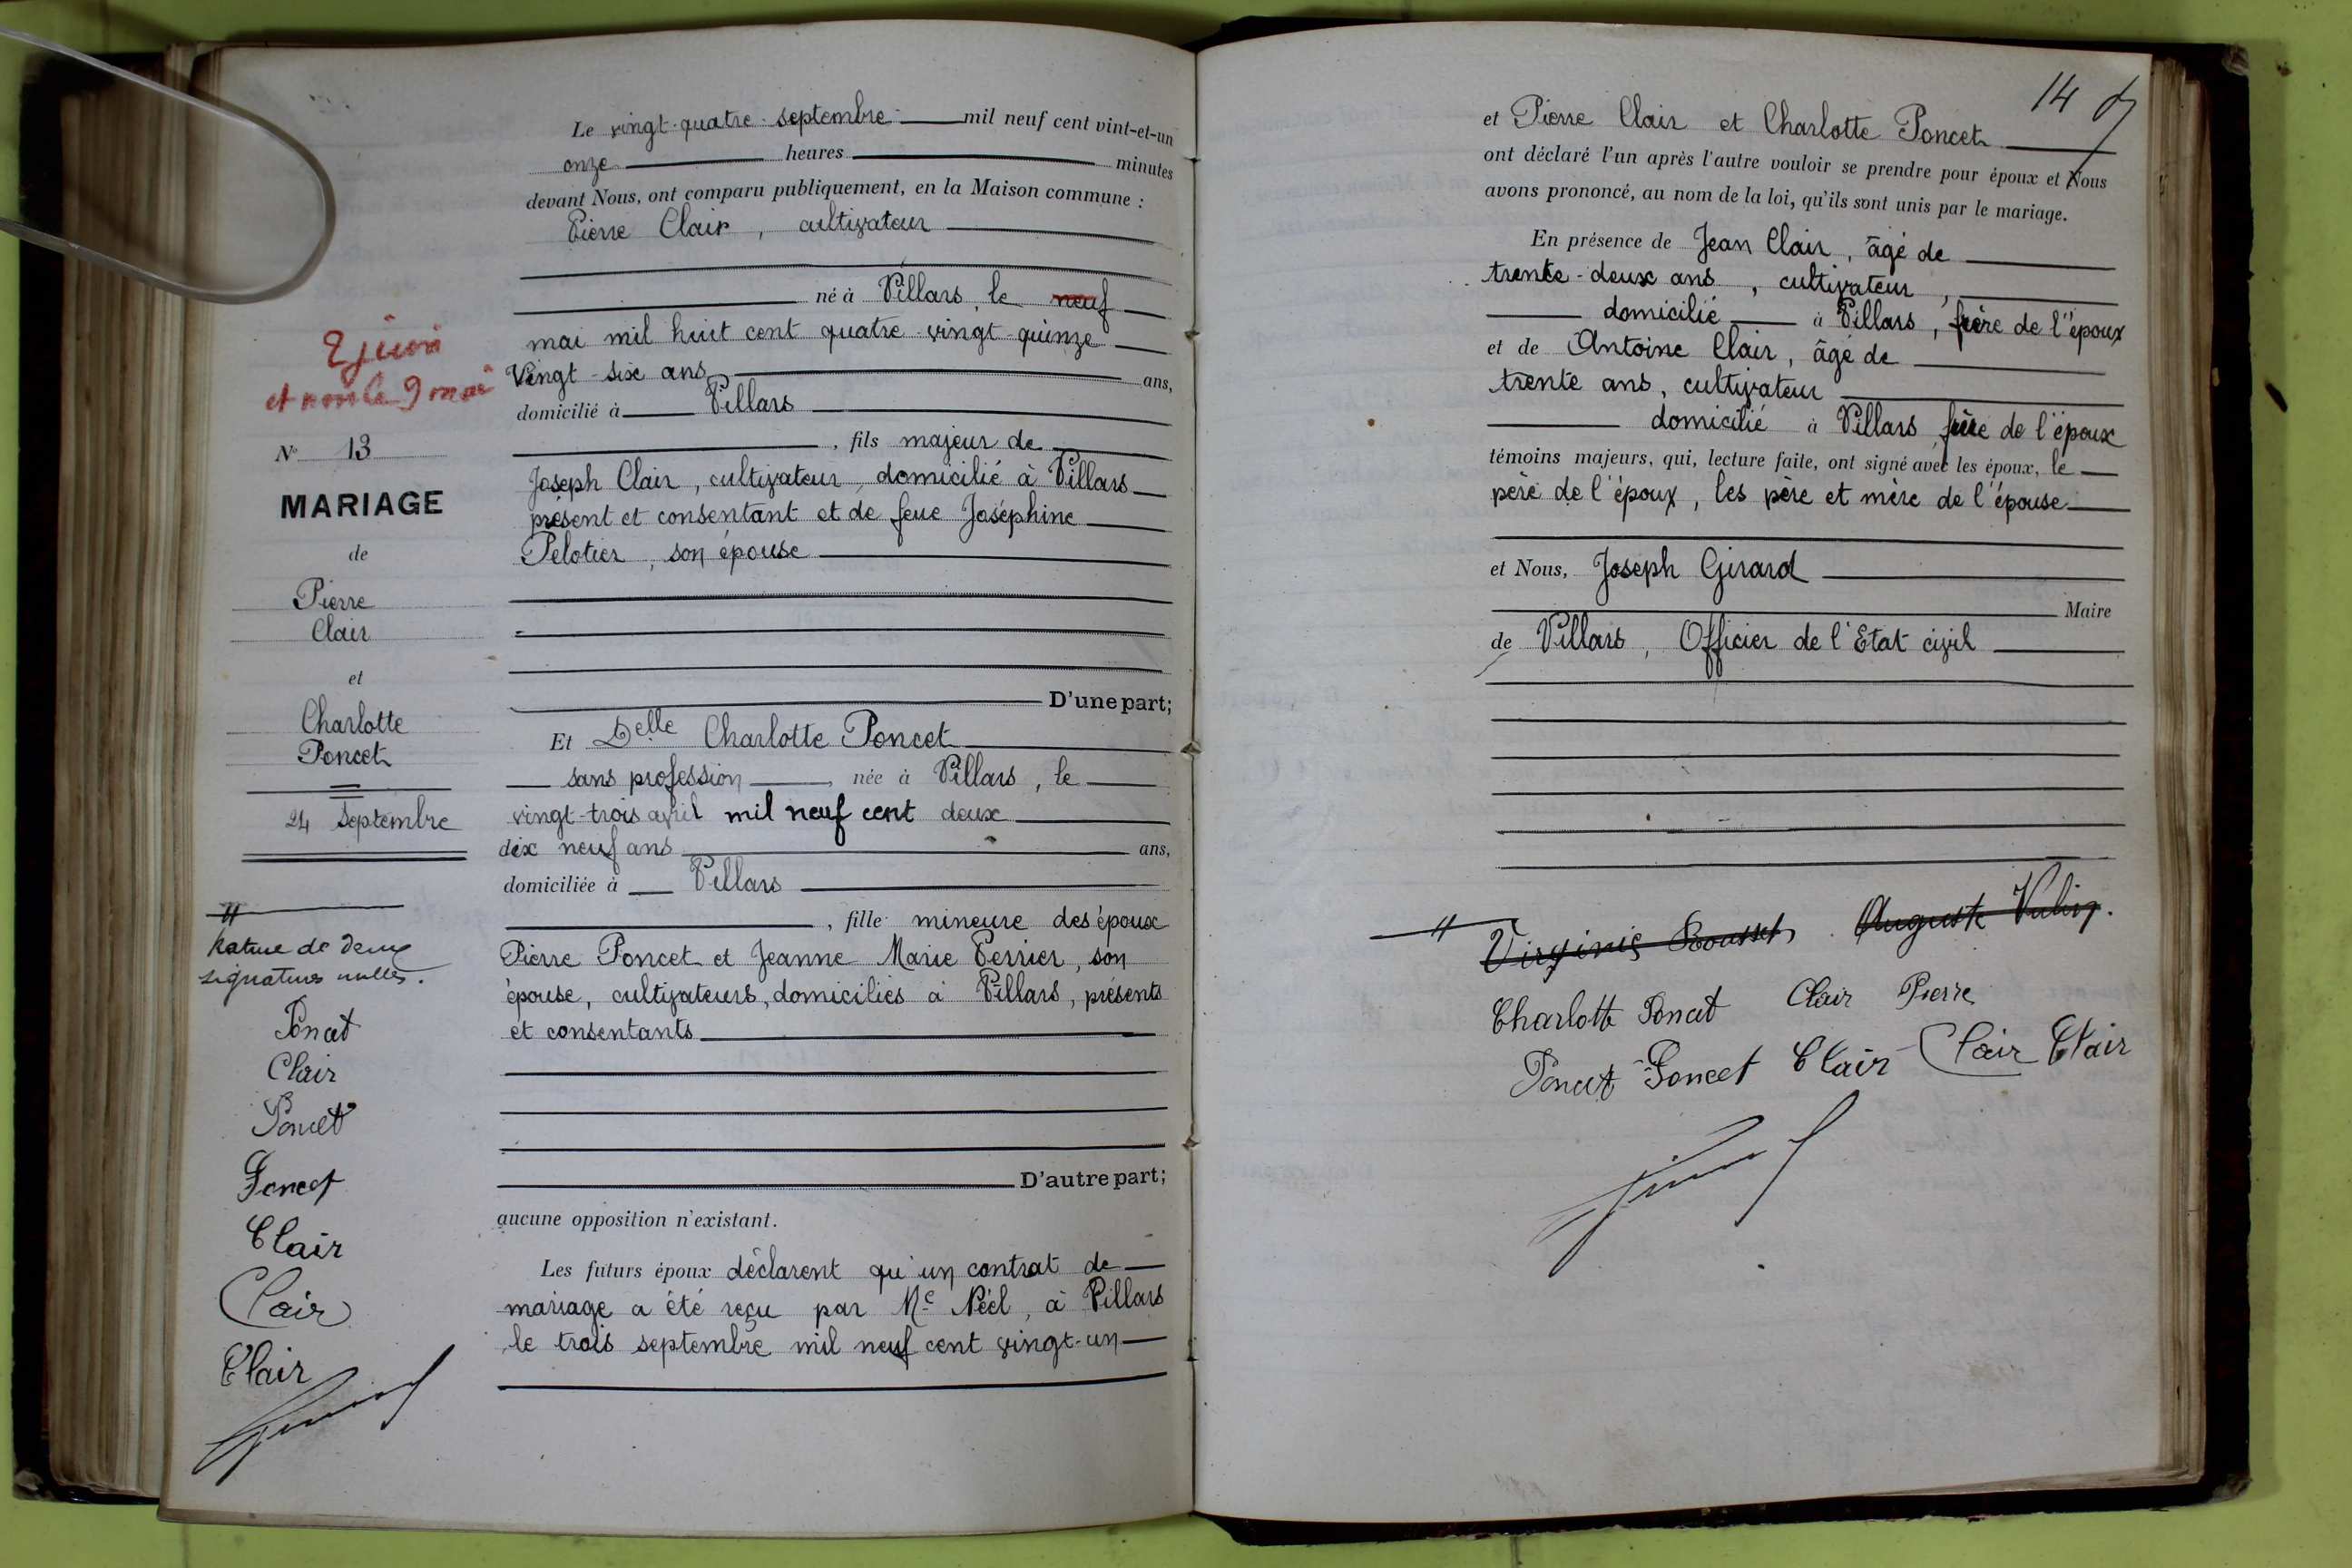 2 juin
et non le 9 mai
N° 13
MARIAGE
de
Pierre
Clair
et
Charlotte
Poncet
24 Septembre
Rature de deux
signatures nulles.
Poncet
Clair
Poncet
Poncet
Clair
Clair
Clair
Le vingt-quatre septembre mil neuf cent vint-et-un
onze heures minutes
devant Nous, ont comparu publiquement, en la Maison commune :
Pierre Clair, cultivateur
né à Villars, le neuf
mai mil huit cent quatre-vingt-quinze
Vingt-six ans ans,
domicilié à Villars
, fils majeur de
Joseph Clair, cultivateur, domicilié à Villars
présent et consentant et de feue Joséphine
Pelotier, son épouse
D'une part;
Et Delle Charlotte Poncet
sans profession, née à Villars, le
vingt-trois avril mil neuf cent deux
dix neuf ans ans,
domiciliée à Villars
, fille mineure des époux
Pierre Poncet et Jeanne Marie Perrier, son
épouse, cultivateurs, domiciliés à Villars, présents
et consentants
D'autre part;
aucune opposition n'existant.
Les futurs époux déclarent qu'un contrat de
mariage a été reçu par Me Néel, à Villars
le trois septembre mil neuf cent vingt-un
14
et Pierre Clair et Charlotte Poncet
ont déclaré l'un après l'autre vouloir se prendre pour époux et Nous
avons prononcé, au nom de la loi, qu'ils sont unis par le mariage.
En présence de Jean Clair, âgé de
trente-deux ans, cultivateur,
domicilié à Villars, frère de l'époux
et de Antoine Clair, âgé de
trente ans, cultivateur
domicilié à Villars frère de l'époux
témoins majeurs, qui, lecture faite, ont signé avec les époux, le
père de l'époux, les père et mère de l'épouse
et Nous, Joseph Girard
Maire
de Villars, Officier de l'Etat civil
Virginie Rousset Auguste
Charlotte Poncet Clair Pierre
Poncet Poncet Clair Clair Clair